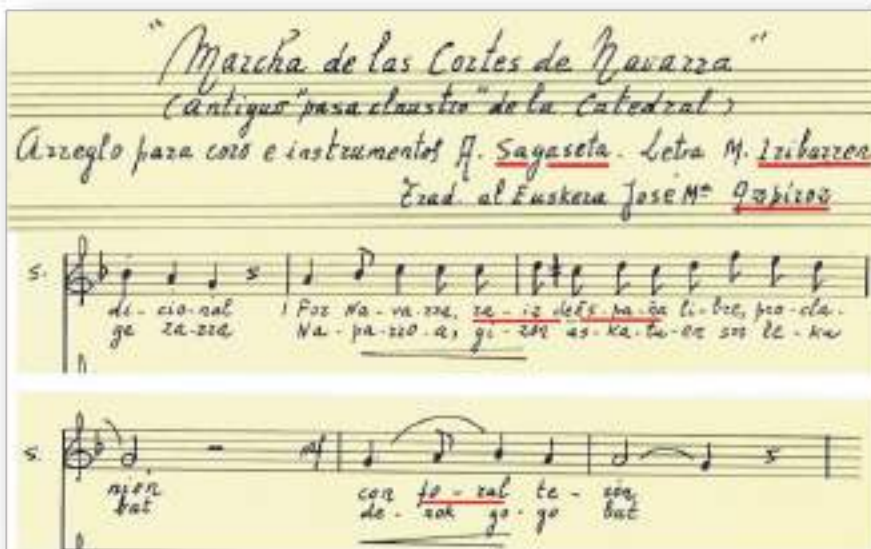 "Marcha de las Cortes de Navarra"
(antiguo "pasaclaustro" de la Catedral)
Arreglo para coro e instrumentos A. Sagaseta. Letra M. Iribarren
Trad. al Euskera José Mª Azpiroz
S.
di - cio - nal ¡Por Na - va - rra, ra - iz de Es - pa - ña li - bre, pro - cla -
ge za - rra Na - pa - rro - a, gi - zon as - ka - tu - en sor le - ku
S. mf
nion con fo - ral te - són,
bat de - rok go - go bat